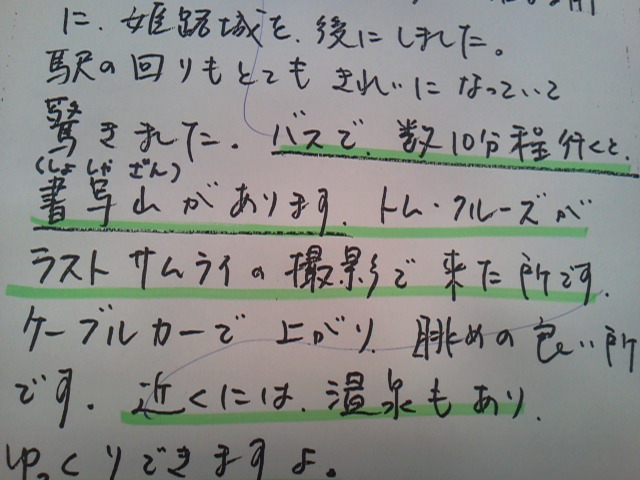 に、姫路城を、後にしました。
駅の回りもとても きれいに なっていて
驚きました。バスで、数10分程行くと、
(しょしゃざん)
書写山があります。トム・クルーズが
ラストサムライの撮影で来た所です。
ケーブルカーで上がり、眺めの良い所
です。近くには、温泉もあり、
ゆっくりできますよ。